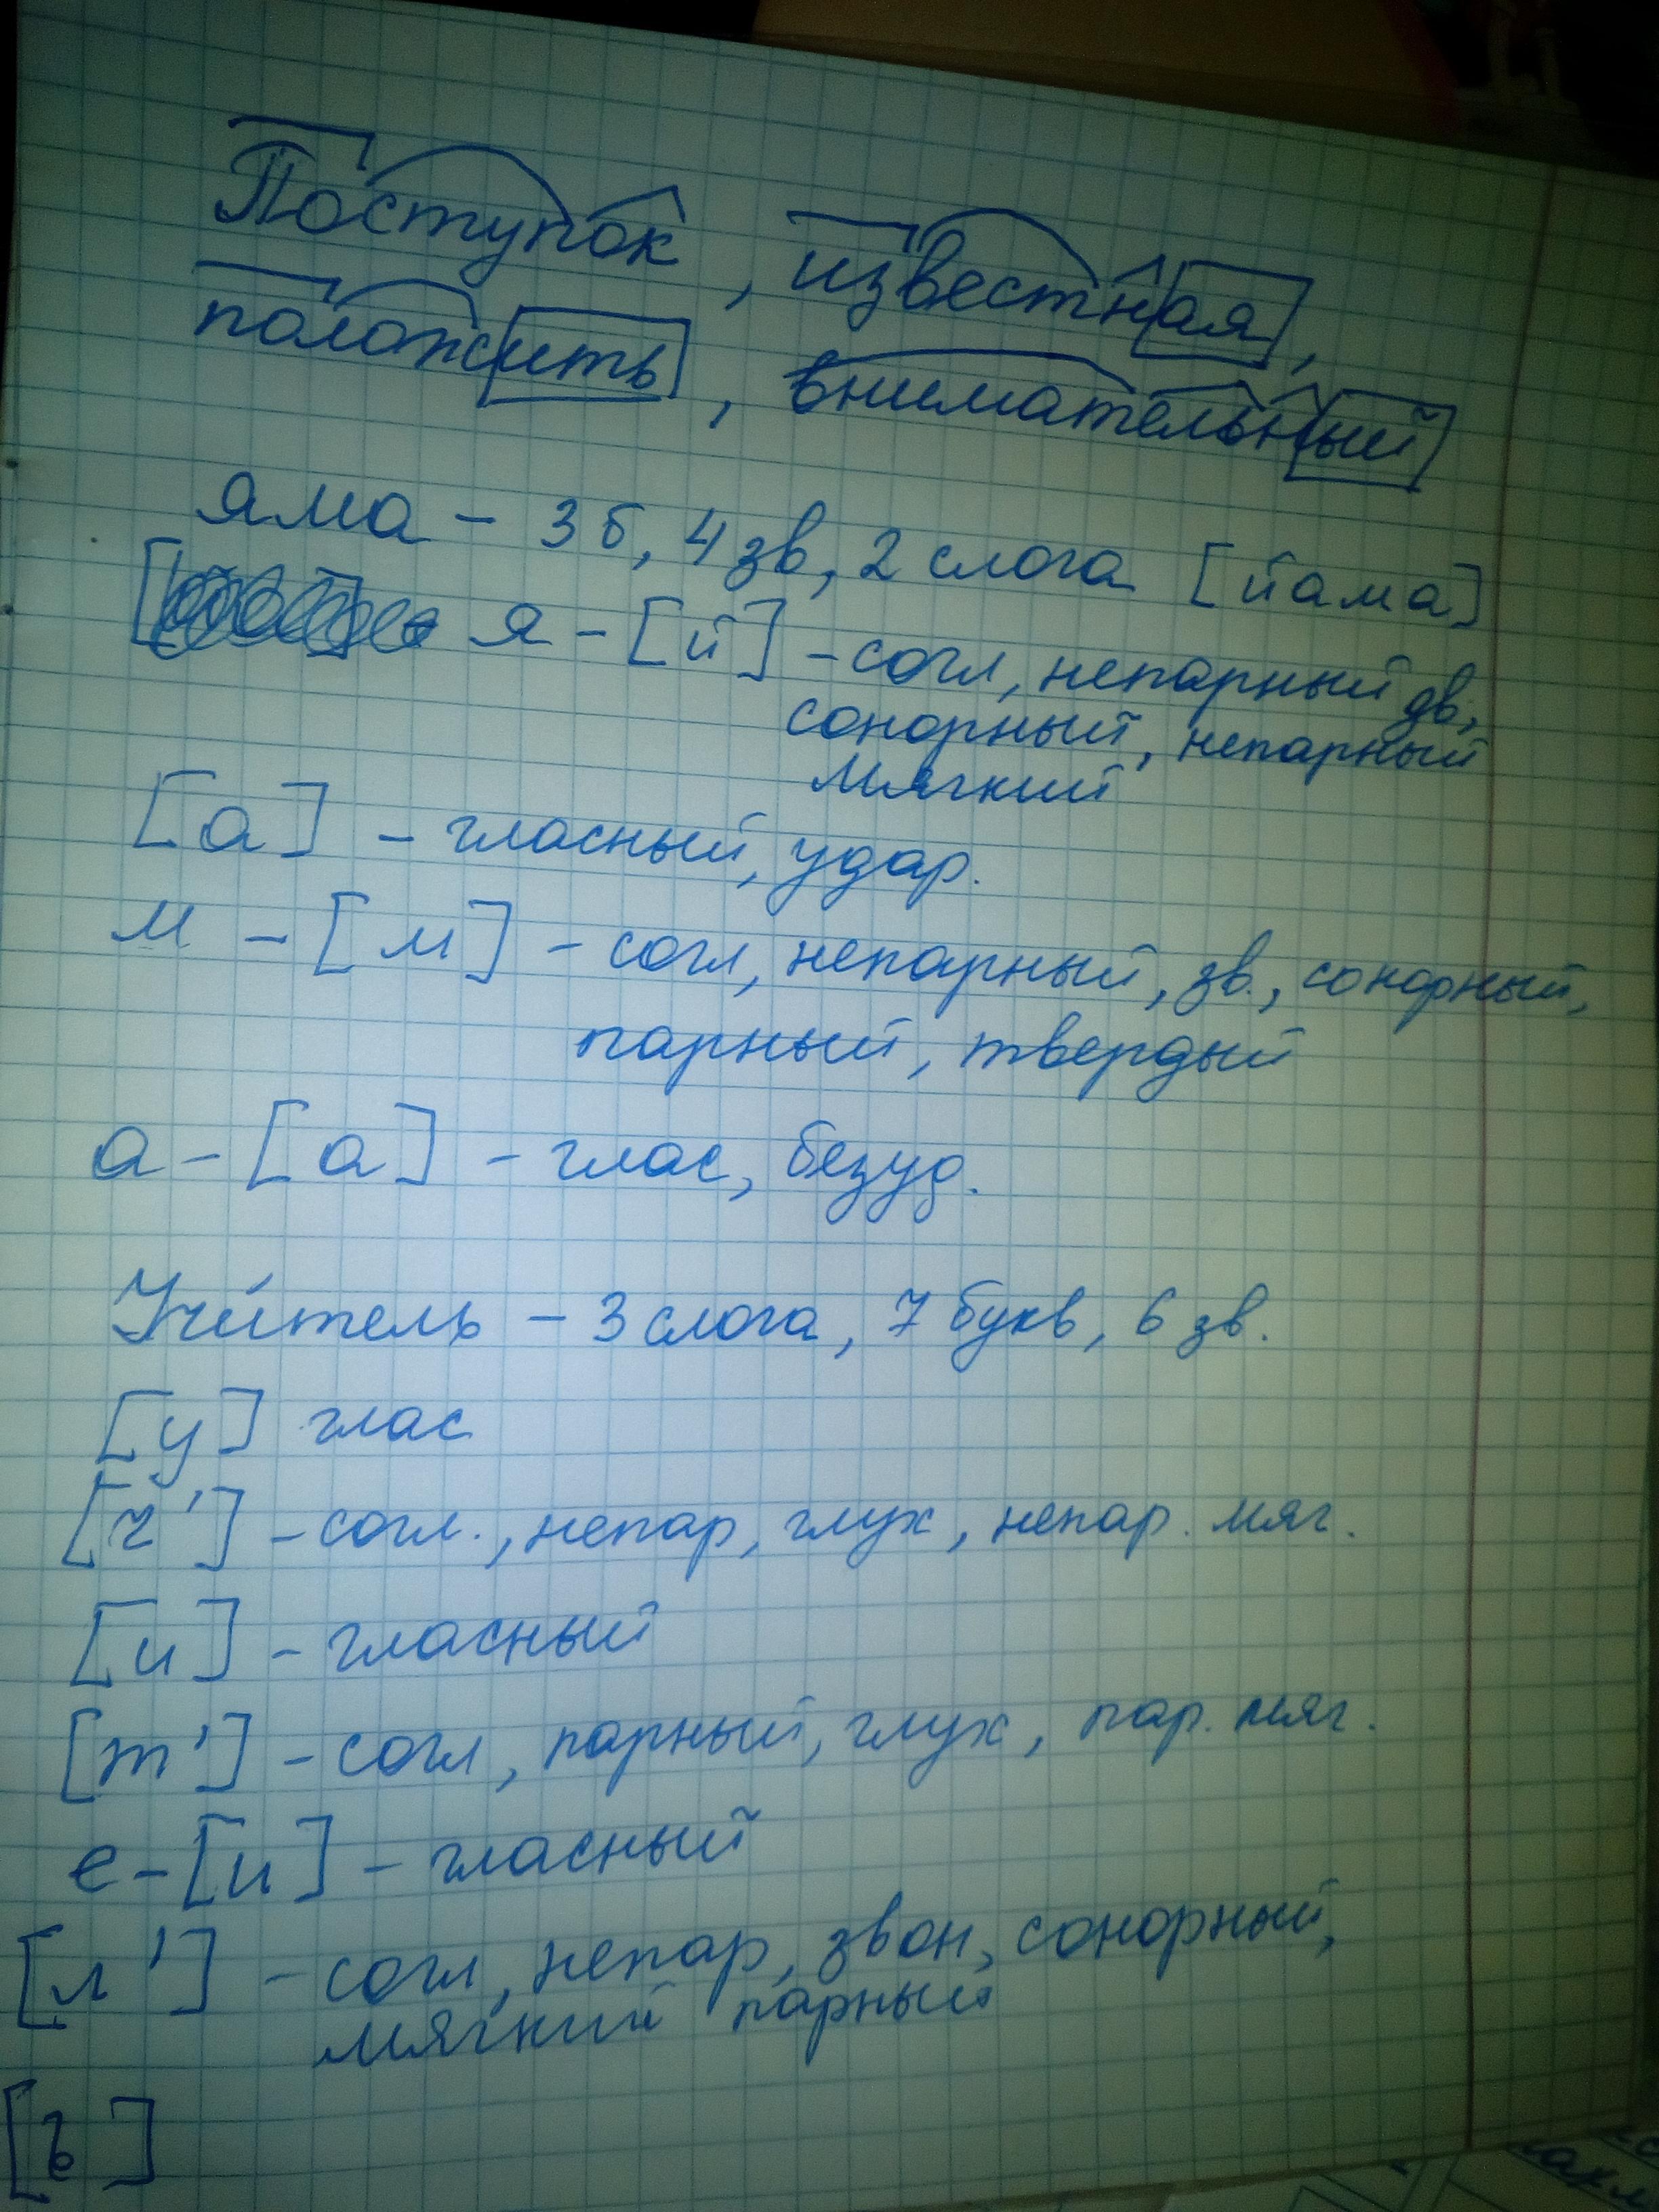 Поступок, известная,
положить, внимательный
яма - 3 б, 4 зв, 2 слога [йама]
я - [й] - согл, непарный зв,
сонорный, непарный
мягкий
[а] - гласный, удар.
м - [м] - согл, непарный, зв., сонорный,
парный, твердый
а - [а] - глас, безуд.
Учи́тель - 3 слога, 7 букв, 6 зв.
[у] глас
[ч'] - согл., непар, глух, непар. мяг.
[и] - гласный
[т'] - согл, парный, глух, пар. мяг.
е - [и] - гласный
[л'] - согл, непар, звон, сонорный,
мягкий парный
[ь]